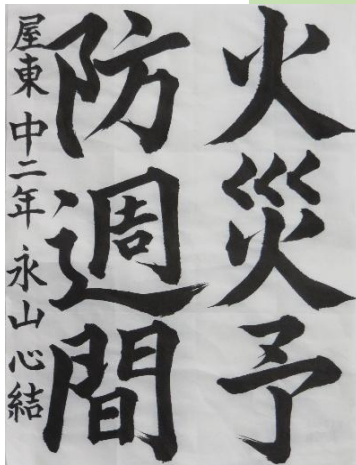 火災予
防週間
屋東中二年 永山心結